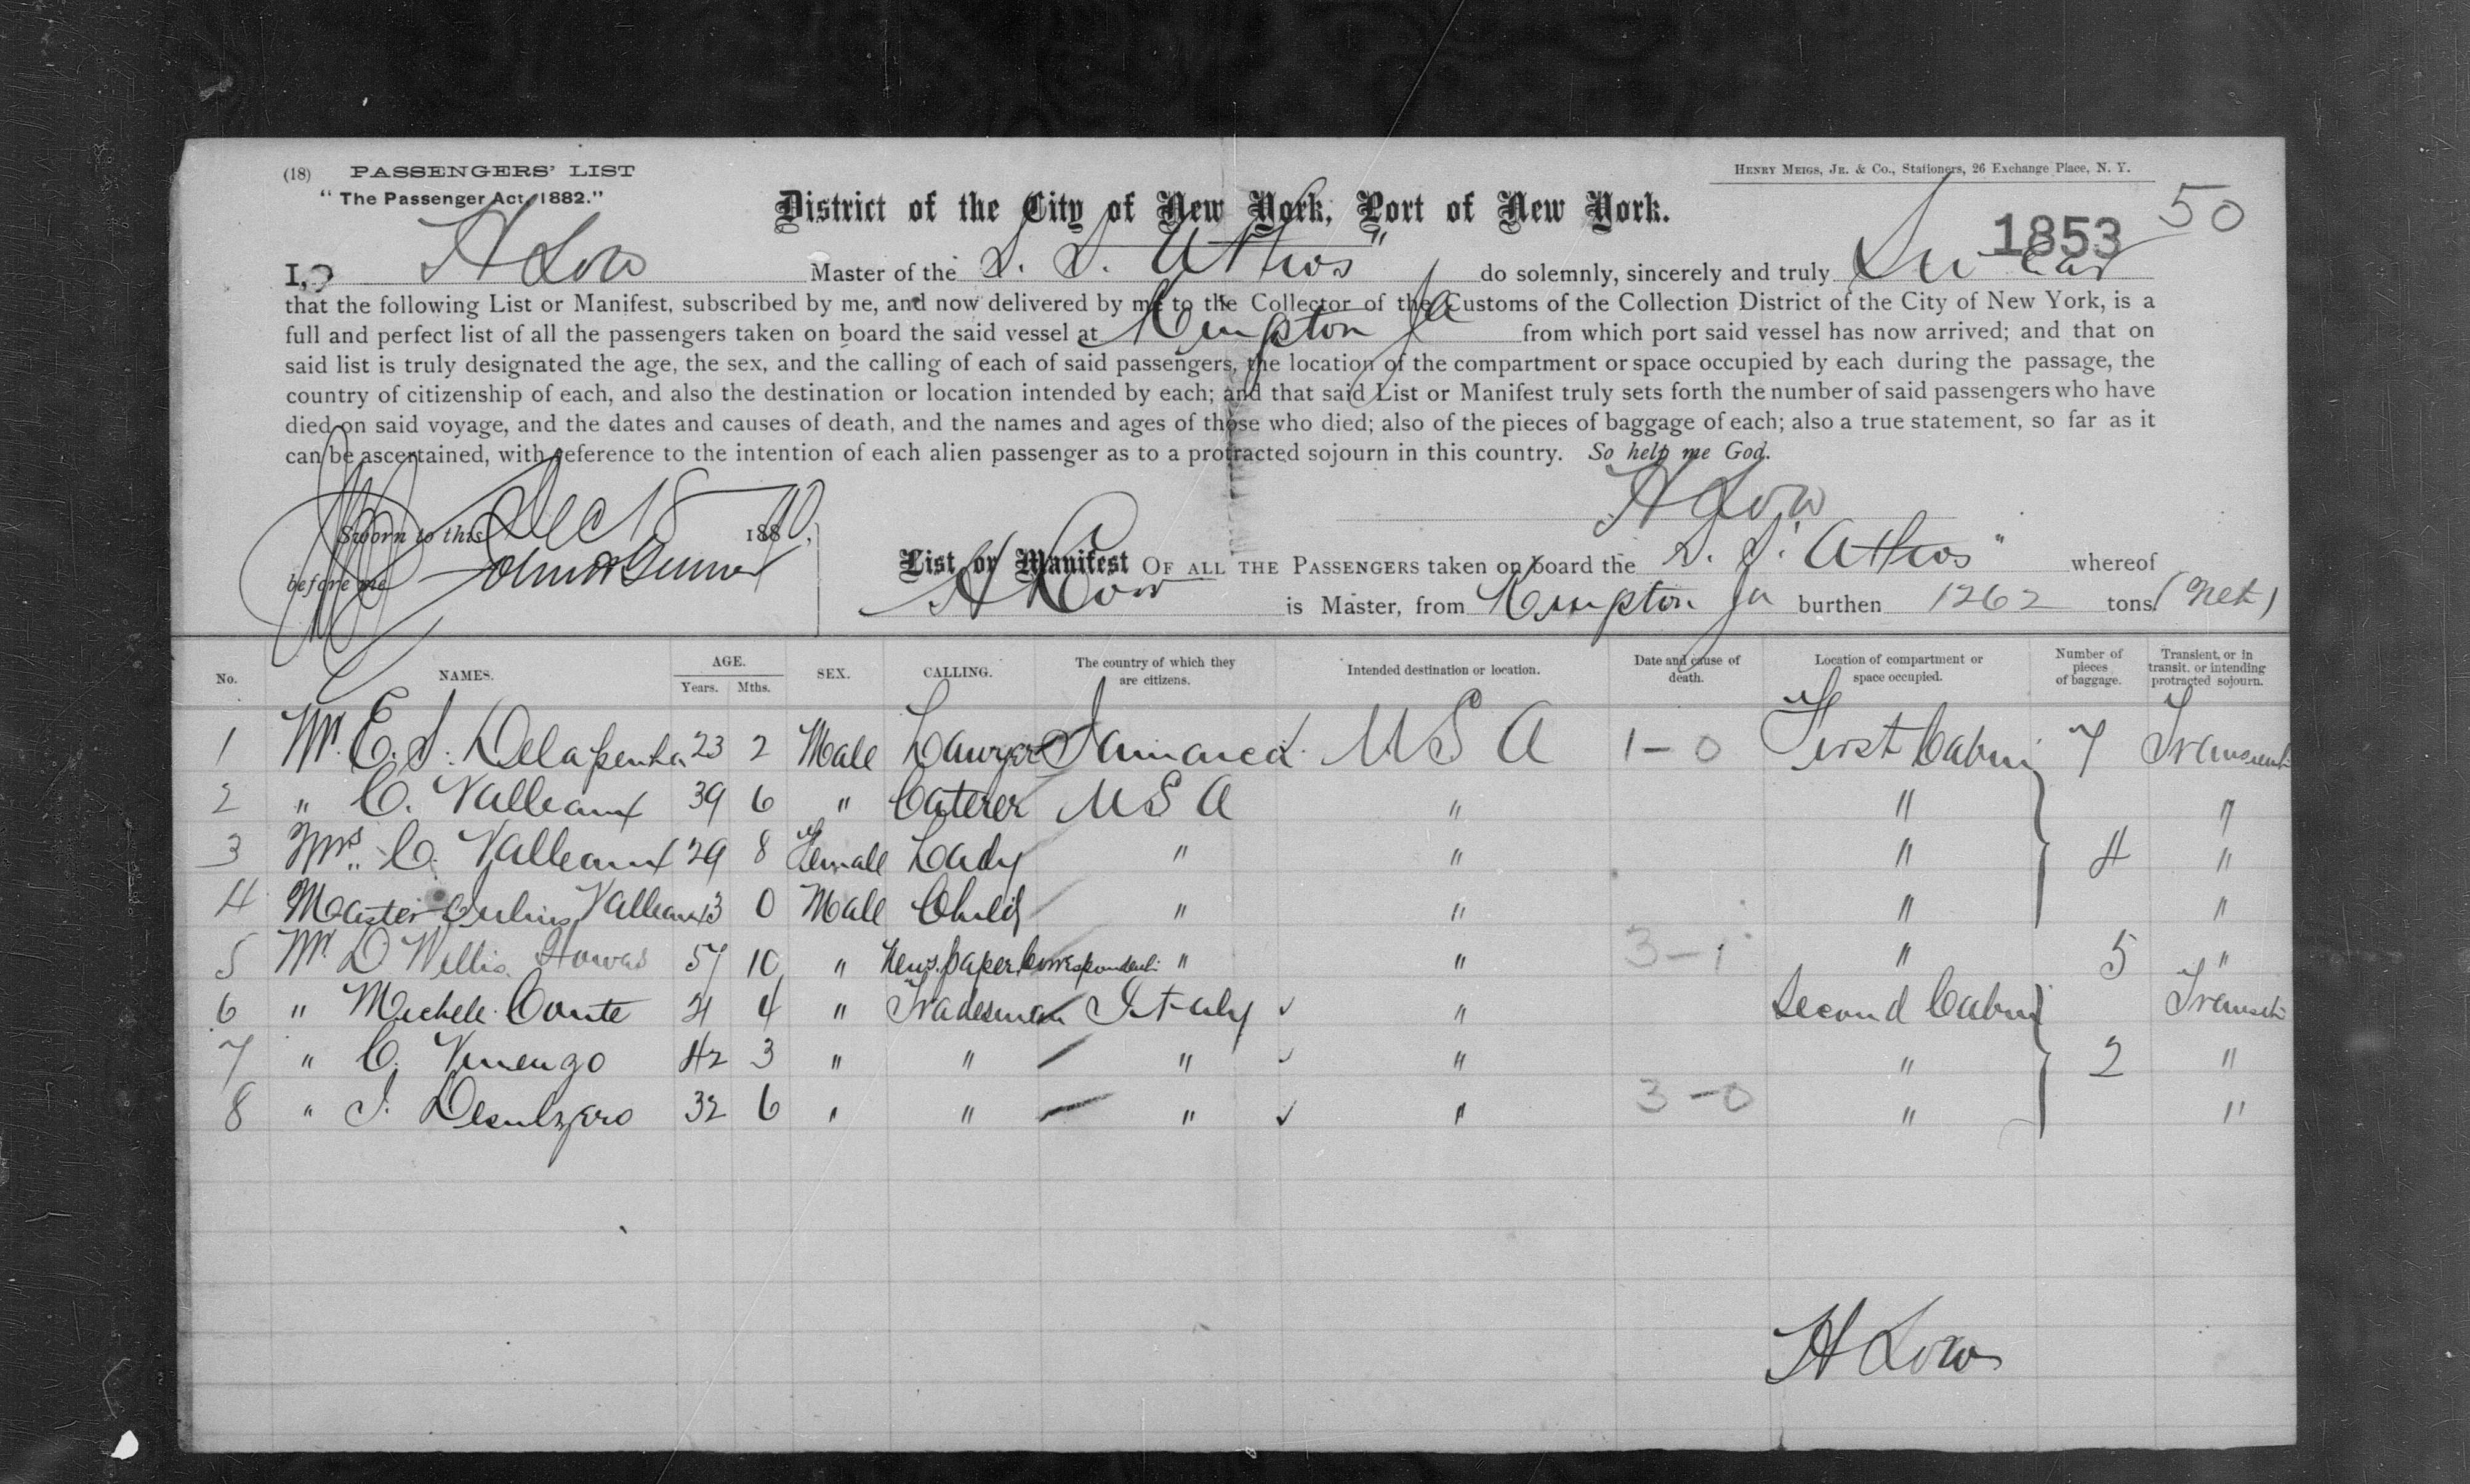 (18) PASSENGERS' LIST
"The Passenger Act, 1882."
HENRY MEIGS, JR. & CO., Stationers, 26 Exchange Place, N. Y.
District of the City of New York, Port of New York.
1853 50
I, H Low Master of the S. S. "Athos" do solemnly, sincerely and truly Swear
that the following List or Manifest, subscribed by me, and now delivered by me to the Collector of the Customs of the Collection District of the City of New York, is a
full and perfect list of all the passengers taken on board the said vessel at Kingston Ja from which port said vessel has now arrived; and that on
said list is truly designated the age, the sex, and the calling of each of said passengers, the location of the compartment or space occupied by each during the passage, the
country of citizenship of each, and also the destination or location intended by each; and that said List or Manifest truly sets forth the number of said passengers who have
died on said voyage, and the dates and causes of death, and the names and ages of those who died; also of the pieces of baggage of each; also a true statement, so far as it
can be ascertained, with reference to the intention of each alien passenger as to a protracted sojourn in this country. So help me God.
H Low
Sworn to this Dec 18 1890
before me
List or Manifest OF ALL THE PASSENGERS taken on board the S. S. "Athos" whereof
H Low is Master, from Kingston Ja burthen 1262 tons (Net)
No. NAMES. AGE. Years. Mths. SEX. CALLING. The country of which they are citizens. Intended destination or location. Date and cause of death. Location of compartment or space occupied. Number of pieces of baggage. Transient, or in transit, or intending protracted sojourn.
1 Mr. E. S. Delapenha 23 2 Male Lawyer Jamaica U S A 1-0 First Cabin 7 Transient
2 " C. Valleaux 39 6 " Caterer U S A " " "
3 Mrs. C. Valleaux 29 8 Female Lady " " " 4 "
4 Master Valleaux 13 0 Male Child " " " "
5 Mr. D Willis 57 10 " Newspaper Correspondent " " 3-1 " 5 "
6 " Michele Conte 21 4 " Tradesman Italy " Second Cabin Transient
7 " C. Vinengo 42 3 " " " " " 2 "
8 " 32 6 " " " " 3-0 " "
H Low